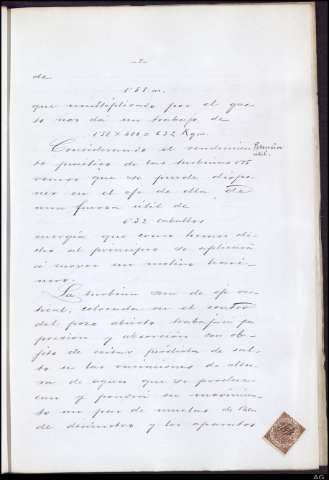 de
1'58 m.
que multiplicado por el gas-
to nos dá un trabajo de
1'58 × 400 = 632 Kgm.
Considerando el rendimien-
to practico de las turbinas 0'75
vemos que se puede dispo-
ner en el eje de ella de
una fuerza útil de
6'32 caballos
energia que como hemos di-
cho al principio se aplicará
á mover un molino hari-
nero.
La turbina será de eje ver-
tical, colocada en el centro
del pozo abierto trabajará por
presion y absorcion con ob-
jeto de evitar pérdida de sal-
to en las variaciones de altu-
ra de agua que se produz-
can y pondrá en movimien-
to un par de muelas de
de diámetro y los aparatos